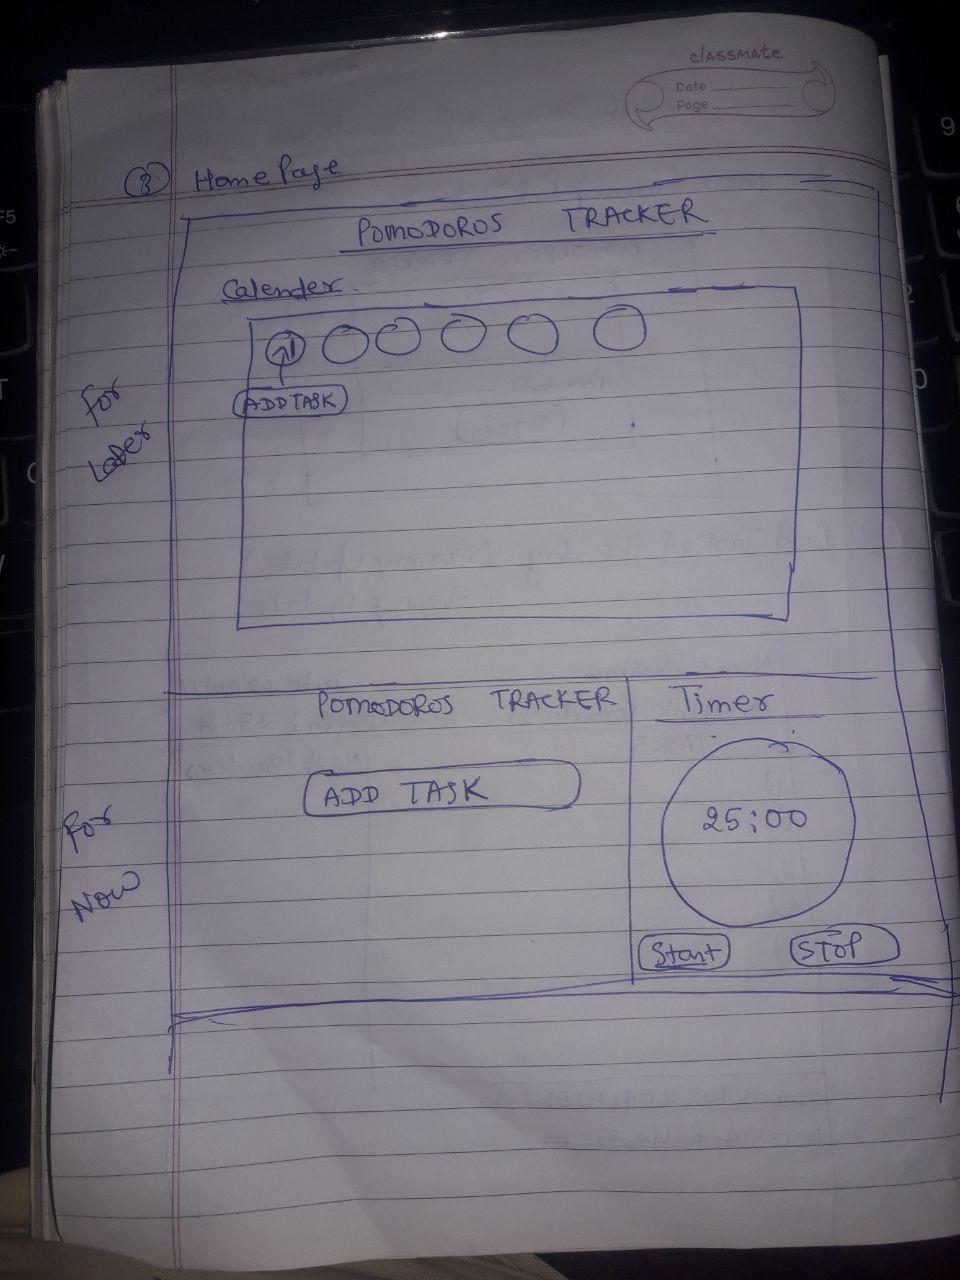 classmate
Date
Page
3 Home Page
POMODOROS TRACKER
Calender.
ADD TASK
For
Later
POMODOROS TRACKER
Timer
ADD TASK
25:00
For
Now
Start
STOP
F5
9